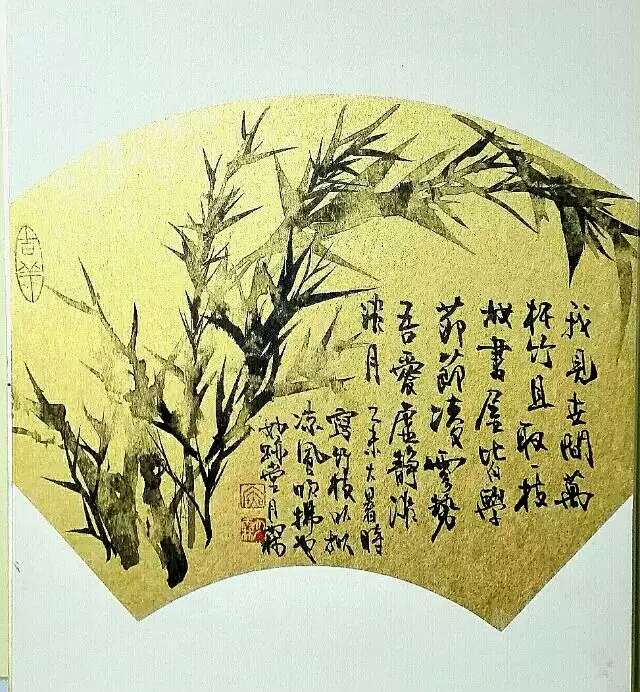 我見世間萬
杆竹且取一枝
放書屋皆學
節節凌雲勢
吾愛虛靜
月
乙未大暑時
寫竹枝以擬
涼風吹拂也
妙堂月
吉羊